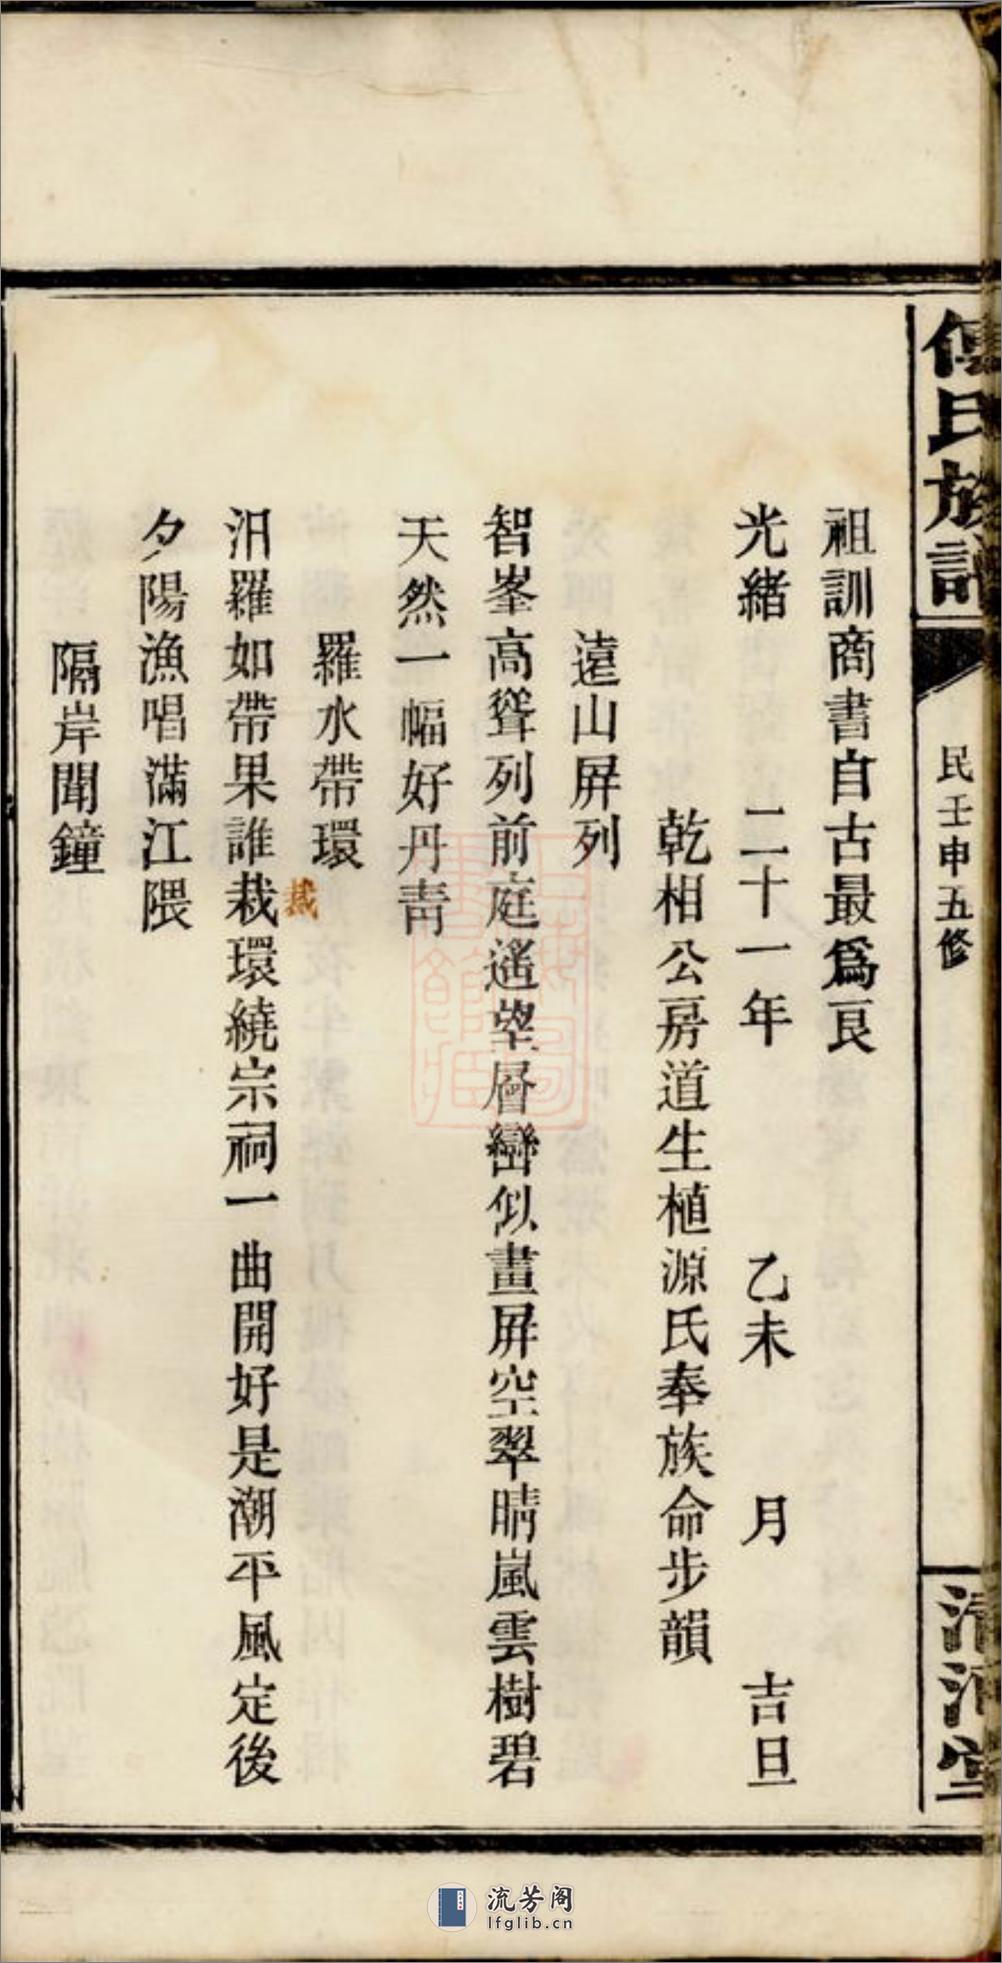 傅氏族譜
民壬申五修
清河堂
祖訓商書自古最爲良
光緒 二十一年 乙未 月 吉旦
乾相公房道生植源氏奉族命步韻
遠山屛列
智峯高聳列前庭遙望層巒似畫屛空翠晴嵐雲樹碧
天然一幅好丹靑
羅水帶環
汨羅如帶果誰栽環繞宗祠一曲開好是潮平風定後
裁
夕陽漁唱滿江隈
隔岸聞鐘
流芳阁
lfglib.cn